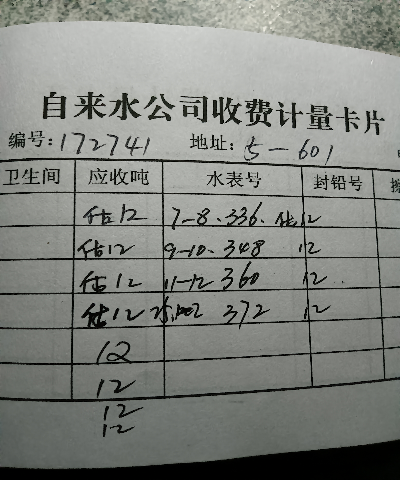 自来水公司收费计量卡片
编号:172741 地址:5-601
卫生间 应收吨 水表号 封铅号
估12 7-8.336.估12
估12 9-10.348 12
估12 11-12 360 12
估12 372 12
12
12
12
12